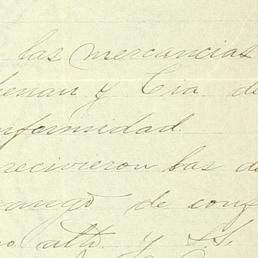 las mercancias
henan y Cia de
nformidad.
recivieron las de
de conf
atto. y S.S.